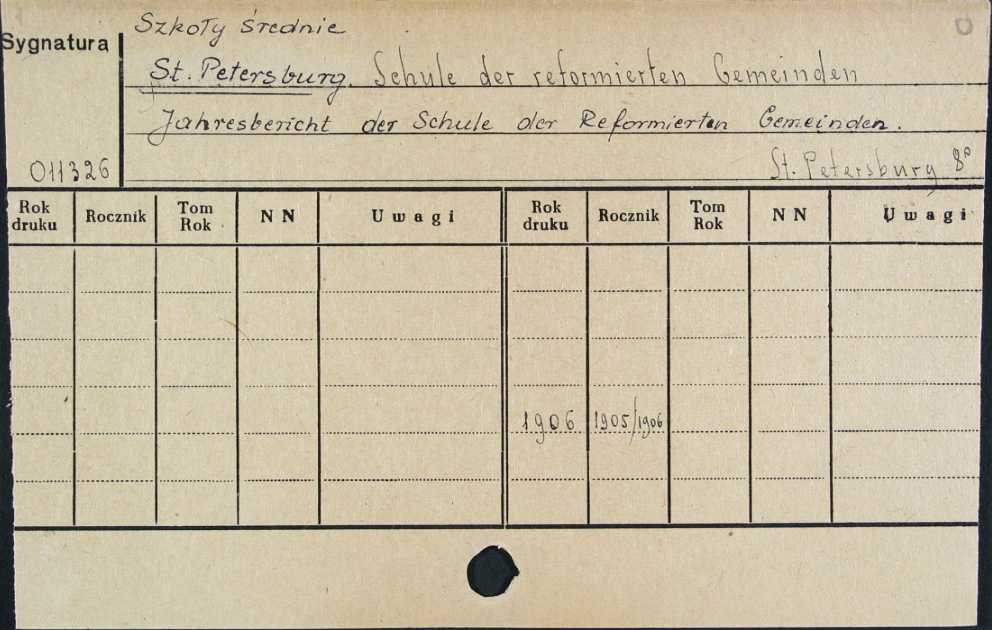 Szkoły średnie
Sygnatura
St. Petersburg. Schule der reformierten Gemeinden
Jahresbericht der Schule der Reformierten Gemeinden.
011326
St. Petersburg 8°
Rok druku Rocznik Tom Rok NN Uwagi Rok druku Rocznik Tom Rok NN Uwagi
1906 1905/1906